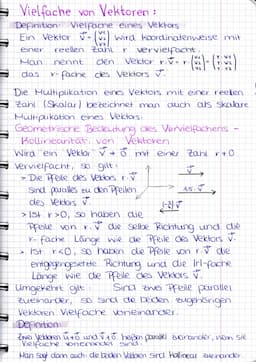 Vielfache von Vektoren:
Definition: Vielfache eines Vektors
Ein Vektor v = (v₁ v₂ v₃) wird koordinatenweise mit
einer reellen Zahl r vervielfacht.
Man nennt den Vektor r·v = r·(v₁ v₂ v₃) = (r·v₁ r·v₂ r·v₃)
das r-fache des Vektors v.
Die Multiplikation eines Vektors mit einer reellen
Zahl (Skalar) bezeichnet man auch als Skalare
Multiplikation eines Vektors.
Geometrische Bedeutung des Vervielfachens -
Kollinearität von Vektoren
Wird ein Vektor v ≠ 0 mit einer Zahl r≠0
vervielfacht, so gilt:
> Die Pfeile des Vektors r·v
sind parallel zu den Pfeilen
des Vektors v.
> Ist r>0, so haben die
Pfeile von r·v die selbe Richtung und die
r-fache Länge wie die Pfeile des Vektors v.
> Ist r<0, so haben die Pfeile von r·v die
entgegengesetzte Richtung und die |r|-fache
Länge wie die Pfeile des Vektors v.
Umgekehrt gilt: Sind zwei Pfeile parallel
zueinander, so sind die beiden zugehörigen
Vektoren Vielfache voneinander.
Definition:
Zwei Vektoren u≠0 und v≠0 heißen parallel zueinander, wenn sie
Vielfache voneinander sind.
Man sagt dann auch die beiden Vektoren sind kollinear zueinander.